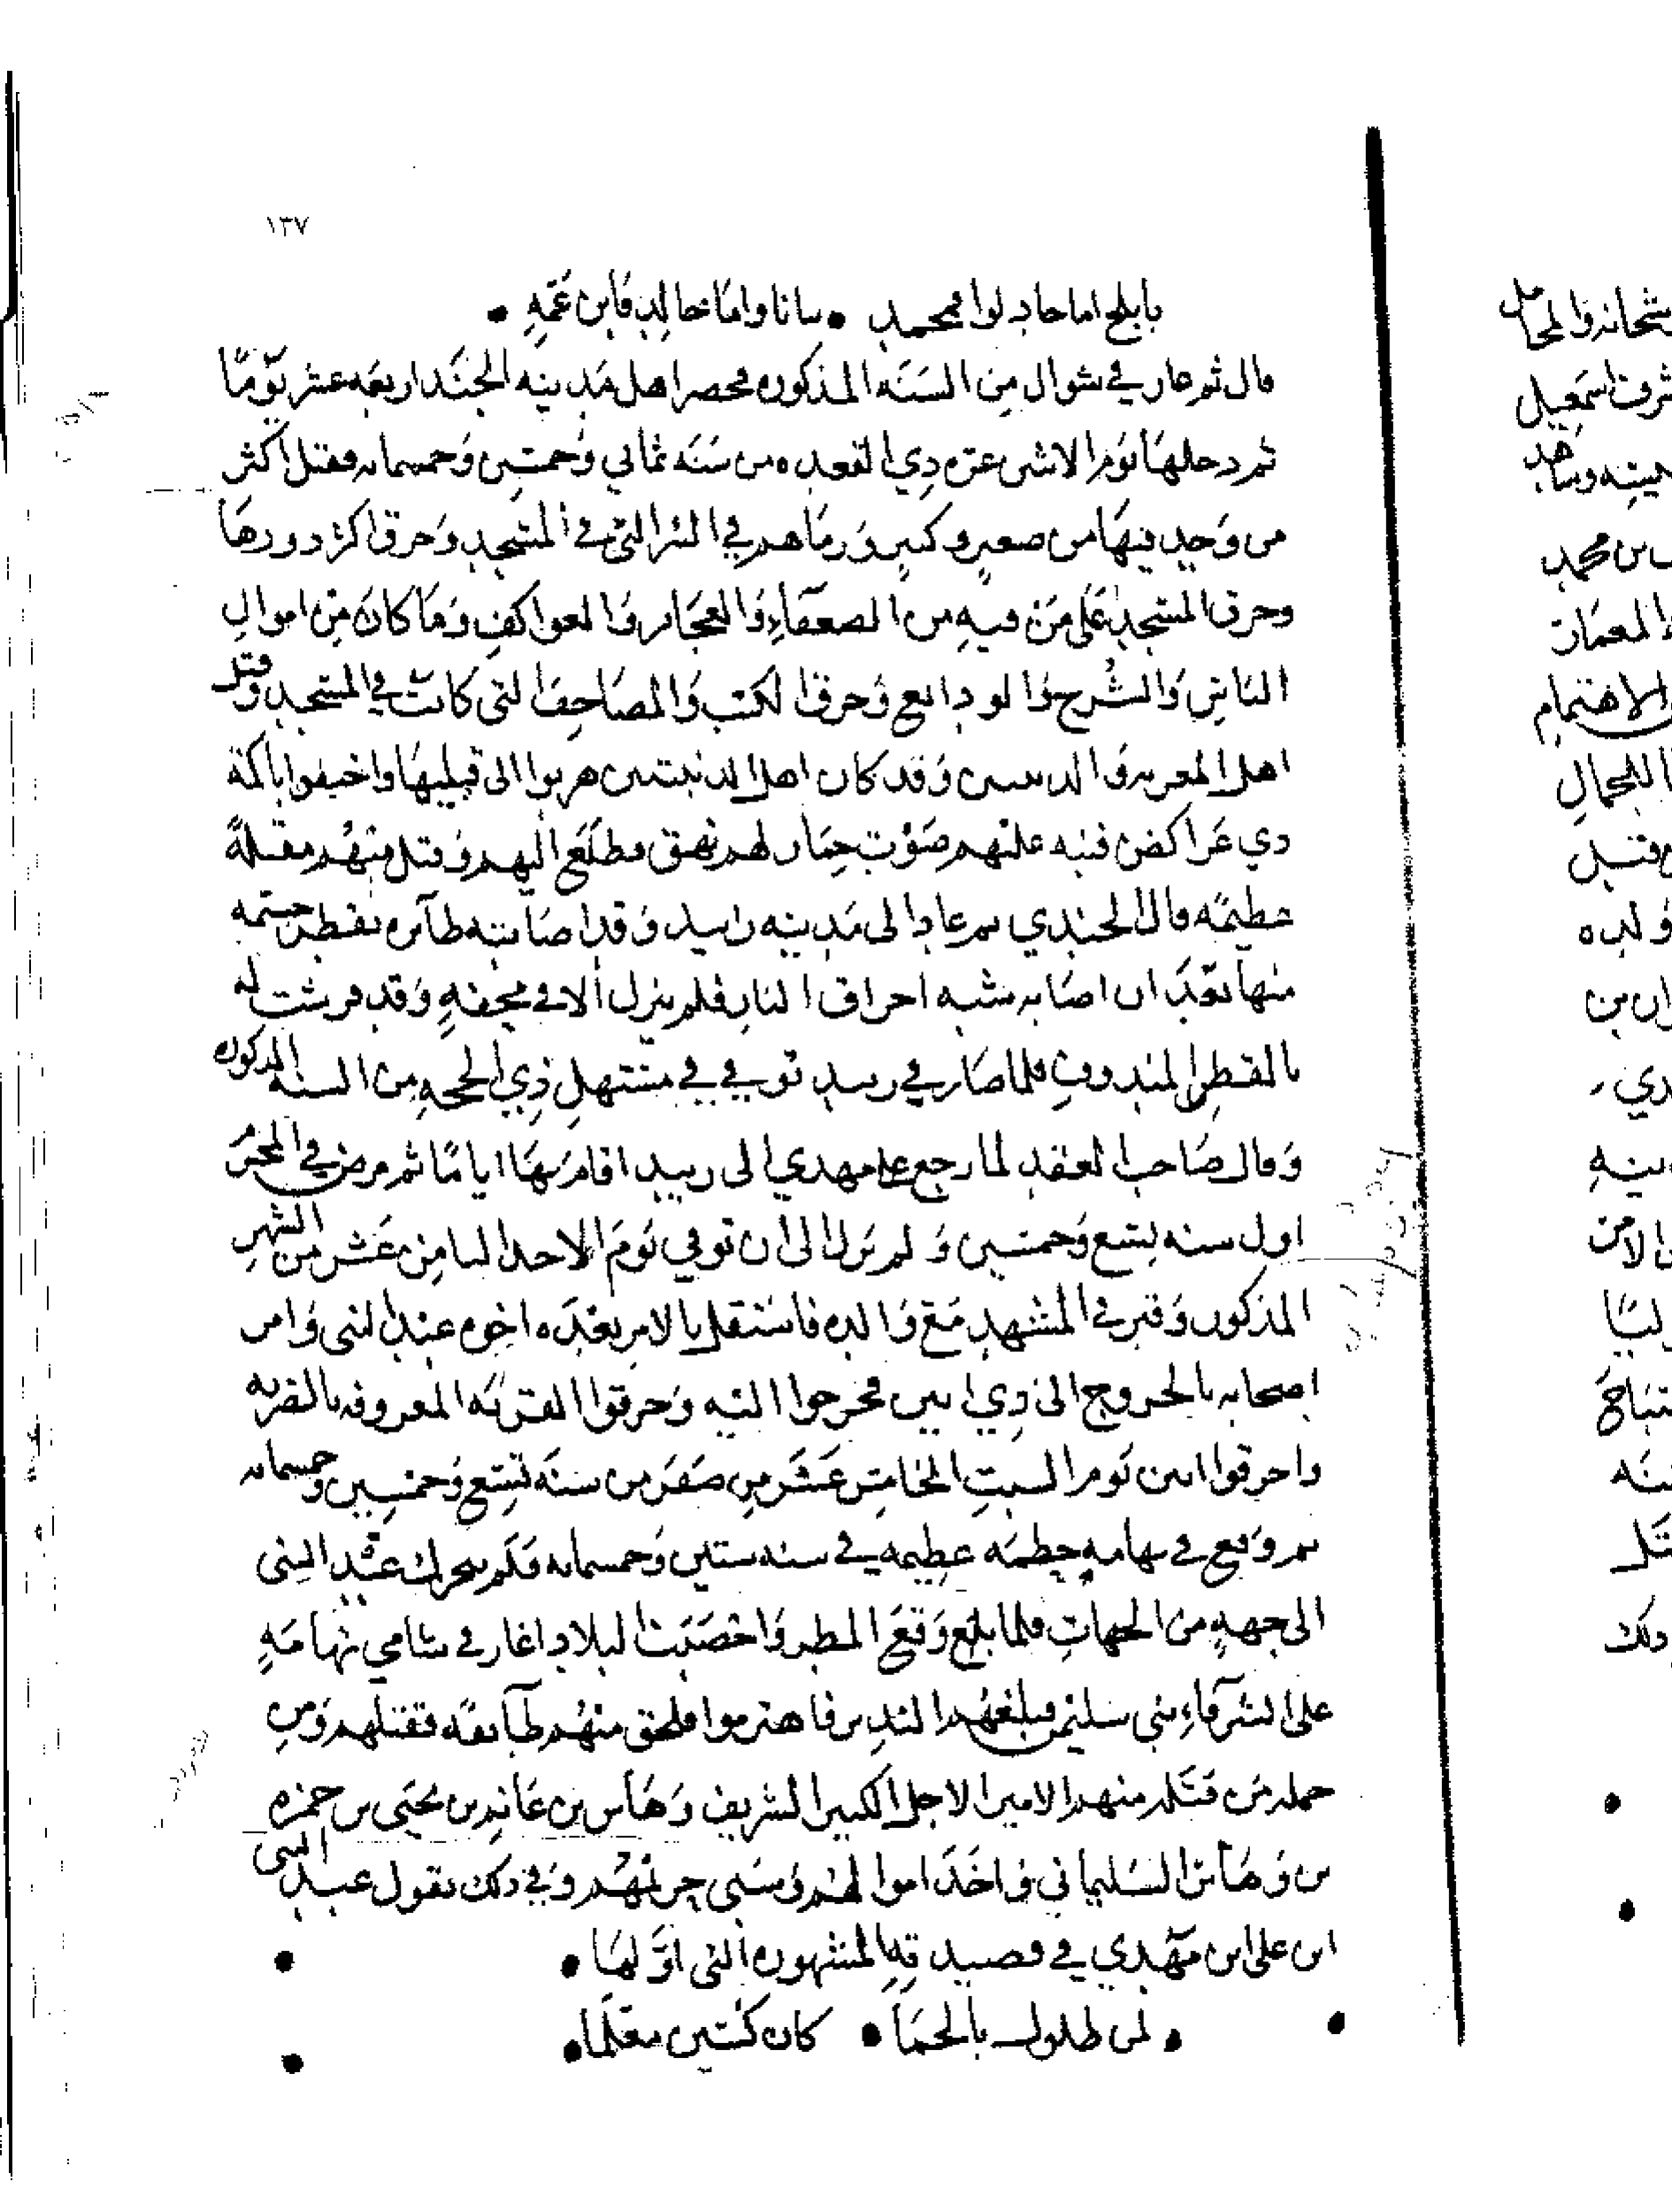 ١٣٧
بابلج اما حاد لوا محمد • سانا واما خالد فابن عمه •
قال ثم عاد في شوال من السنه المذكوره فحصر اهل مدينه الجند اربعه عشر يومًا
ثم دخلها يوم الاثنين غره ذي القعده من سنه ثماني وخمسين وخمسمائه فقتل اكثر
من وجد فيها من صغير وكبير ورماهم في البئر التي في المسجد وحرق اكثر دورها
وحرق المسجد على من فيه من الضعفاء والعجايز والعواكف وما كان من اموال
الناس والشرح والودايع وحرق الكتب والمصاحف التي كانت في المسجد وقتل
اهل المعربه والدنبتين وقد كان اهل الدنبتين هربوا الى قبليها واخيفوا باكمة
ذي عراكض فنبه عليهم صوت حمار لهم نهق فطلع اليهم وقتل منهم مقتلة
عظيمه قال الجندي ثم عاد الى مدينه زبيد وقد اصابته طآئره تفطر جسمه
منها بعد ان اصابه شبه احراق النار فلم ينزل الا في محفه وقد فرشت له
بالقطن المندوف فلما صار في زبيد توفي في مستهل ذي الحجه من السنه المذكوره
وقال صاحب العقد لما رجع على مهدي الى زبيد اقام بها اياما ثم مرض في المحرم
اول سنه تسع وخمسين ولم يزل الى ان توفي يوم الاحد الثامن عشر من الشهر
المذكور وقبر في المشهد مع والده فاستقل بالامر بعده اخوه عبد النبي وامر
اصحابه بالخروج الى ذي ابين فخرجوا اليه وحرقوا القريه المعروفه بالقريه
واحرقوا ابين يوم السبت الخامس عشر من صفر من سنه تسع وخمسين وخمسمائه
ثم وقع في تهامه حطمه عظيمه في سنه ستين وخمسمائه فلم يتحرك عبد النبي
الى جهه من الجهات فلما بلغ وقع المطر واخصبت البلاد اغار في شامي تهامه
على الشرفاء بني سليمن فبلغهم النذير فانهزموا فلحق منهم طآئفه فقتلهم ومن
جمله من قتل منهم الامير الاجل الكبير الشريف وهاس بن غانم بن يحيى بن حمزه
بن وهاس السليماني واخذ اموالهم وسبى حريمهم وفي ذلك يقول عبد النبي
ابن على ابن مهدي في قصيدته المشهوره التي اولها •
• لمن طلول بالحما • كان كستين معلما •